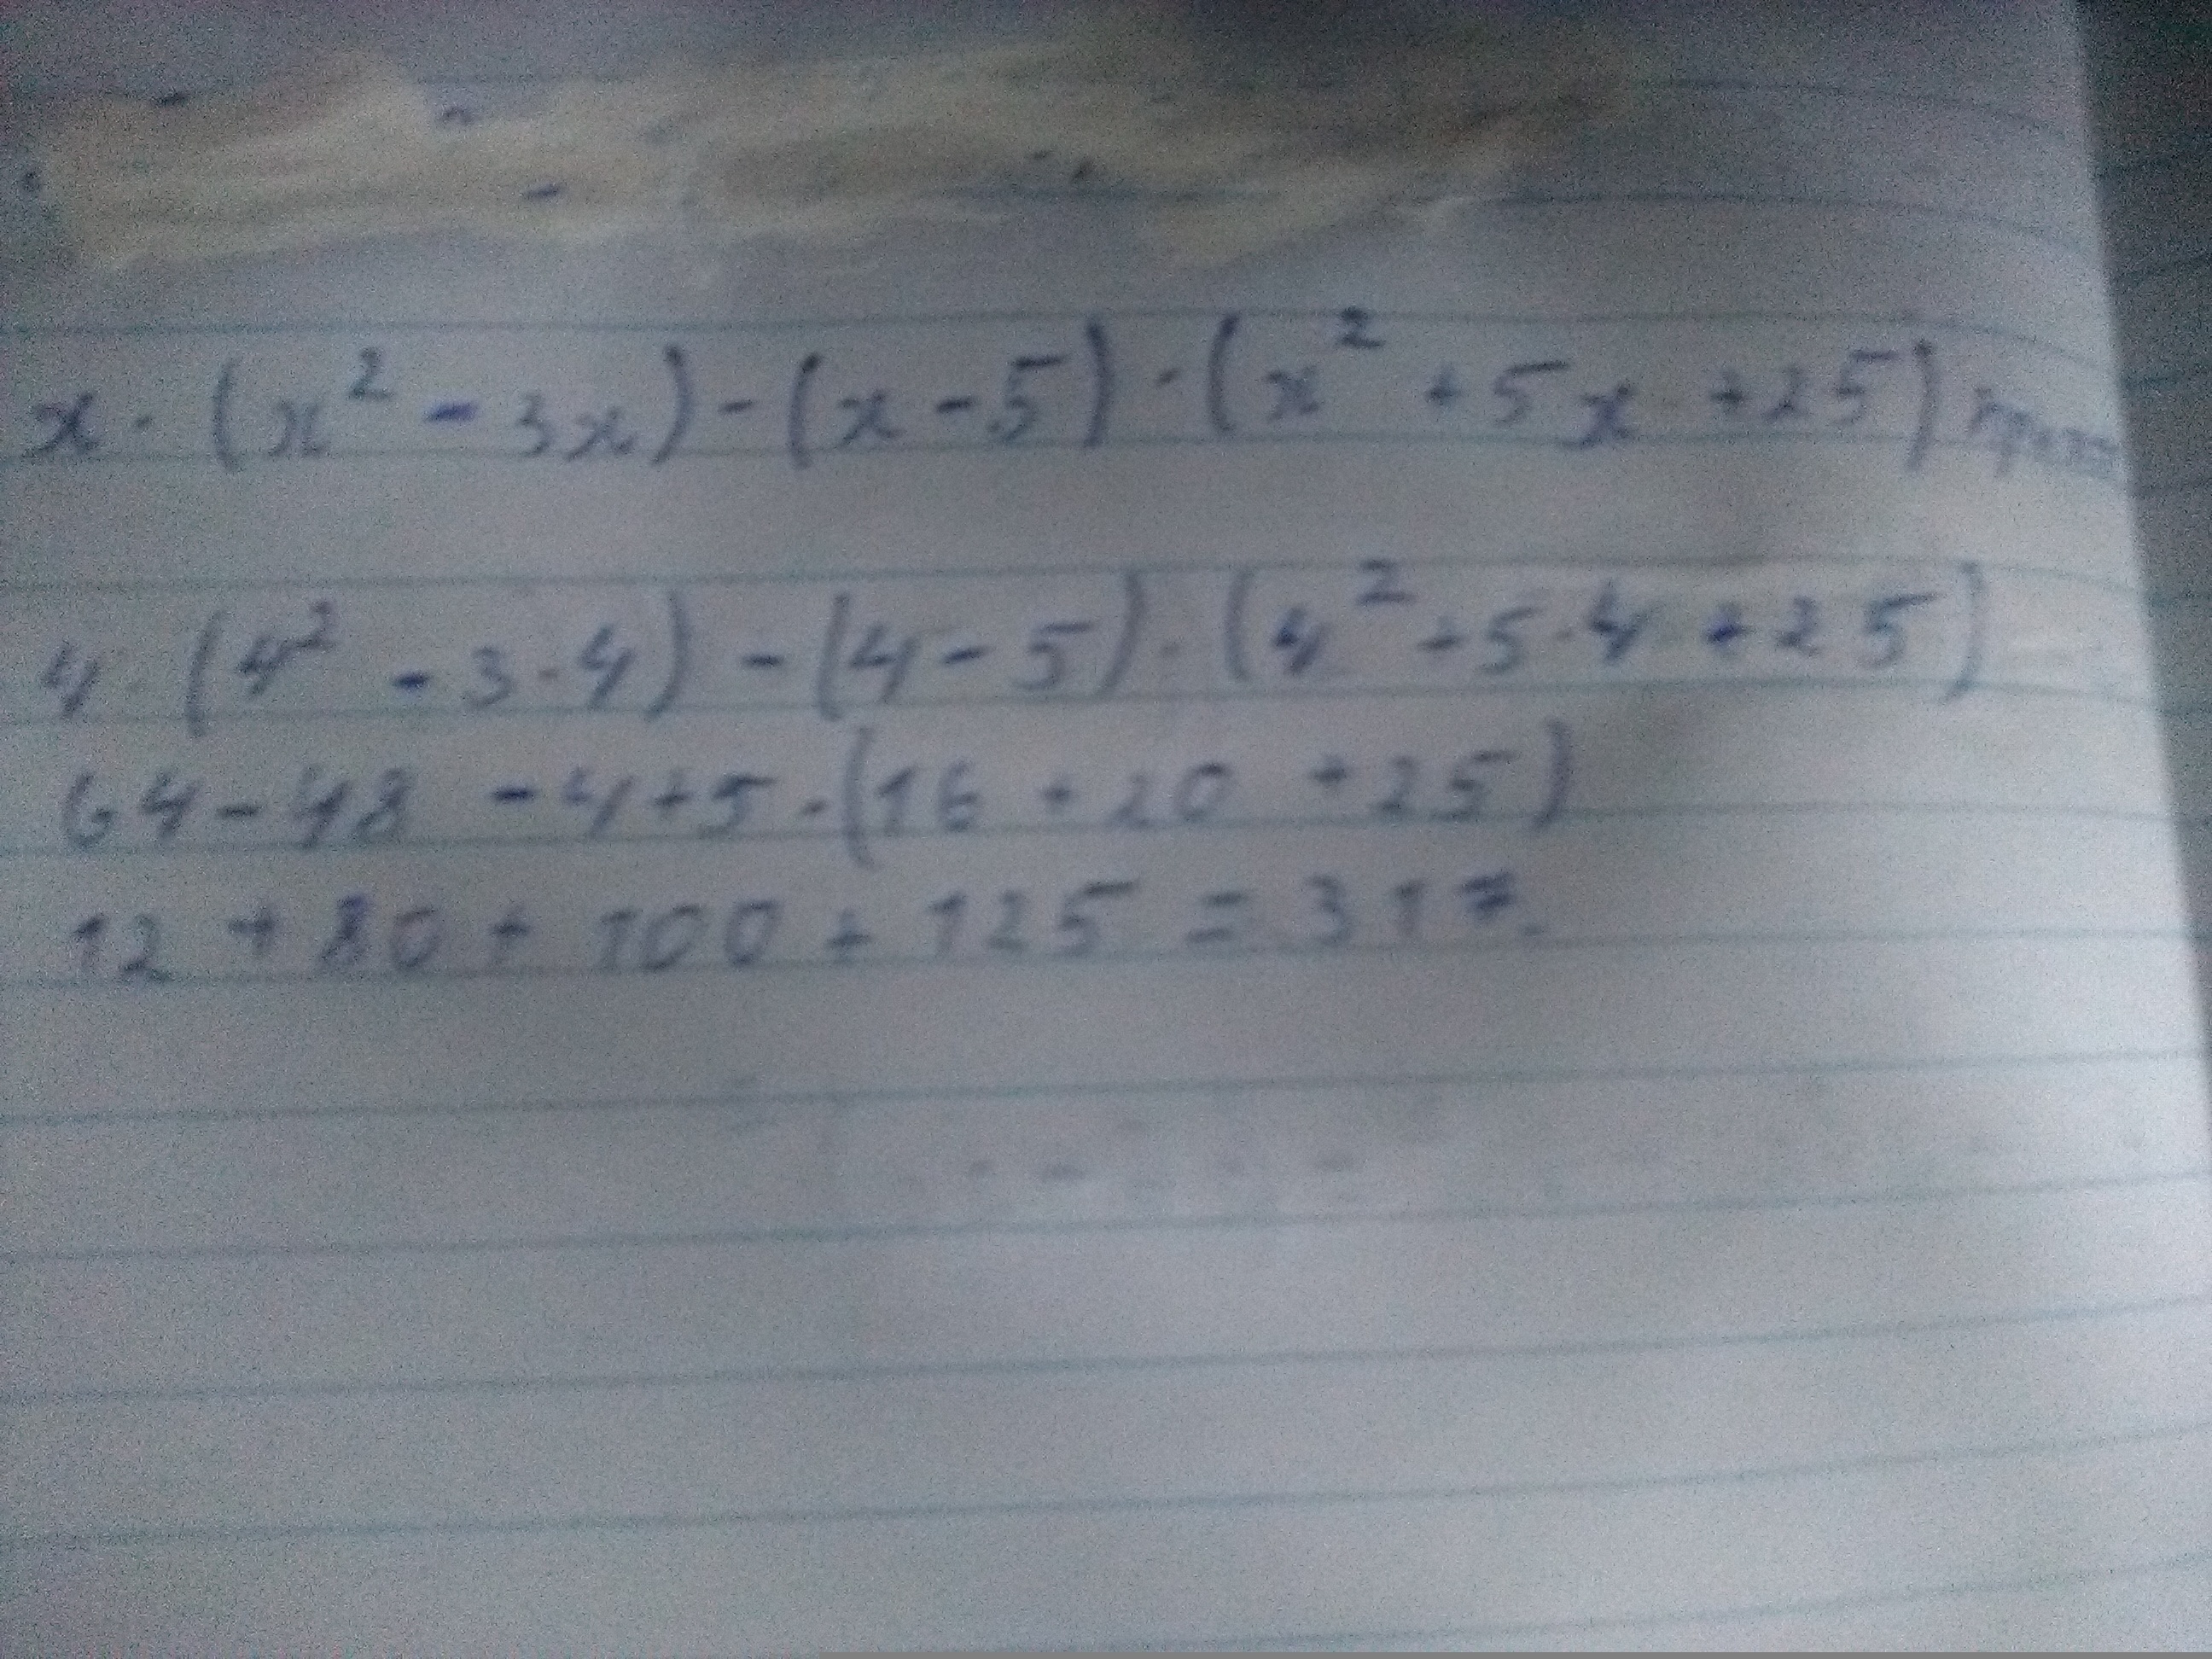 x · (x² - 3x) - (x - 5) · (x² + 5x + 25) при x=
4 · (4² - 3 · 4) - (4 - 5) · (4² + 5 · 4 + 25)
64 - 48 - 4 + 5 · (16 + 20 + 25)
12 + 80 + 100 + 125 = 317.